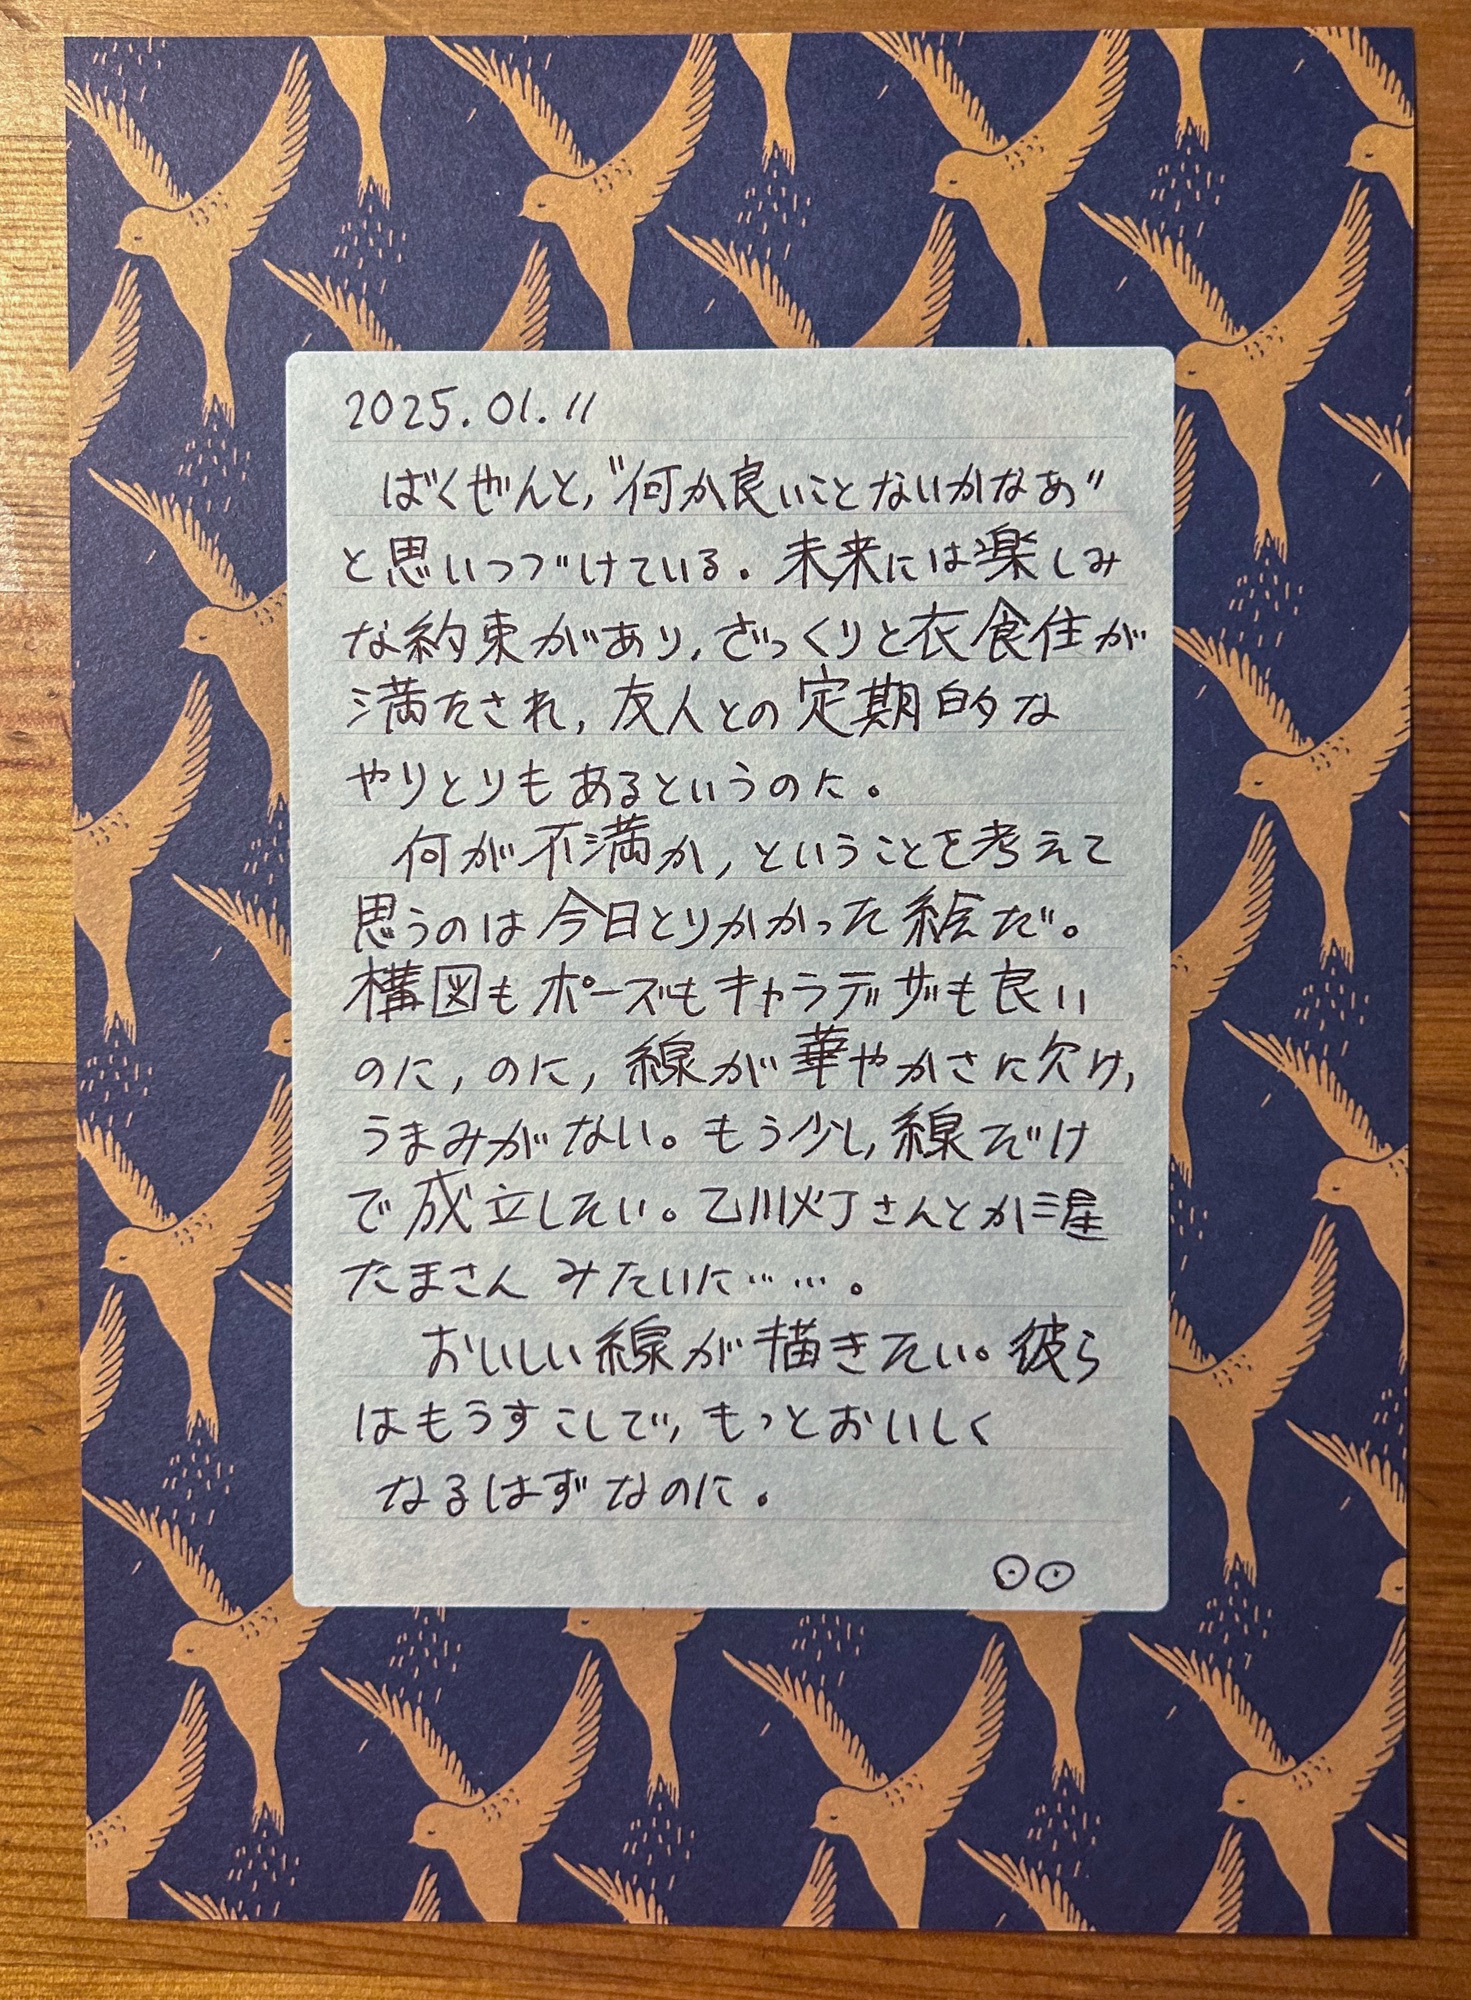 2025.01.11
ばくぜんと,"何か良いことないかなあ"
と思いつづけている。未来には楽しみ
な約束があり,ざっくりと衣食住が
満たされ,友人との定期的な
やりとりもあるというのに。
何が不満か,ということを考えて
思うのは今日とりかかった絵だ。
構図もポーズもキャラデザも良い
のに,のに,線が華やかさに欠け,
うまみがない。もう少し,線だけ
で成立したい。乙川灯さんとか渥
たまさんみたいに……。
おいしい線が描きたい。彼ら
はもうすこしで,もっとおいしく
なるはずなのに。